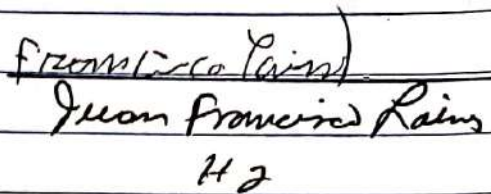 Francisco Lains)
Juan Francisco Lains
H 2